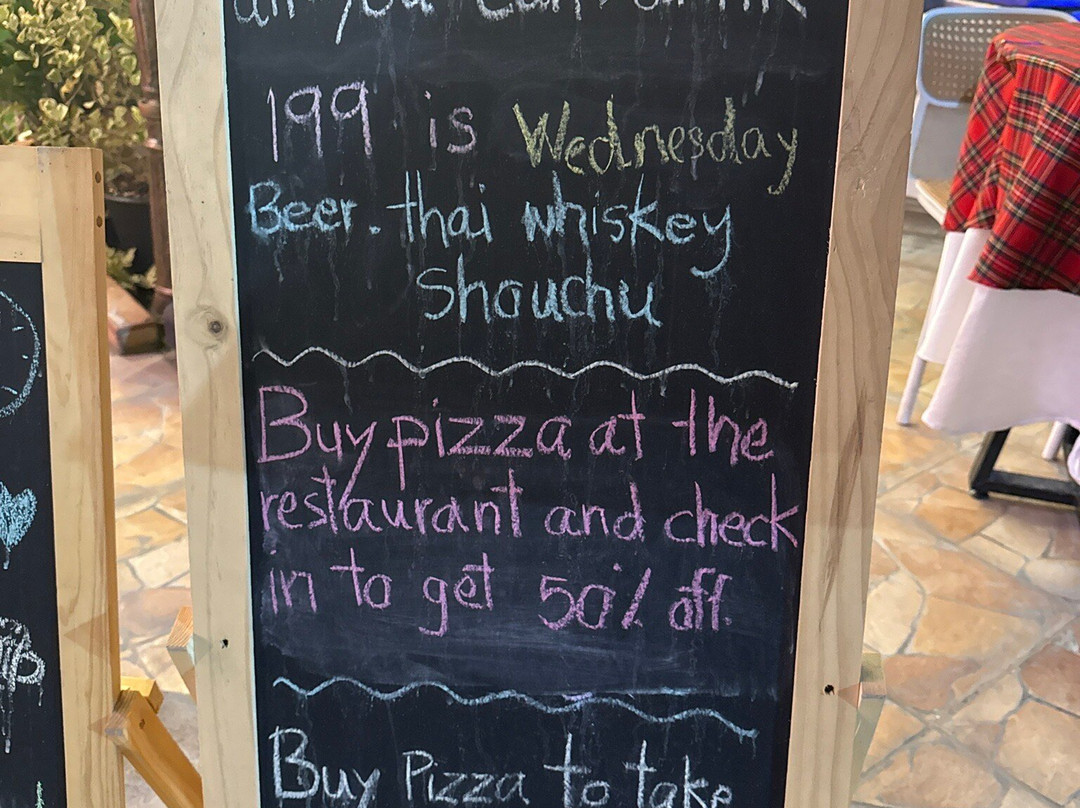 all you can drink
199 is Wednesday
Beer. thai whiskey
Shouchu
Buy pizza at the
restaurant and check
in to get 50% off
Buy Pizza to take